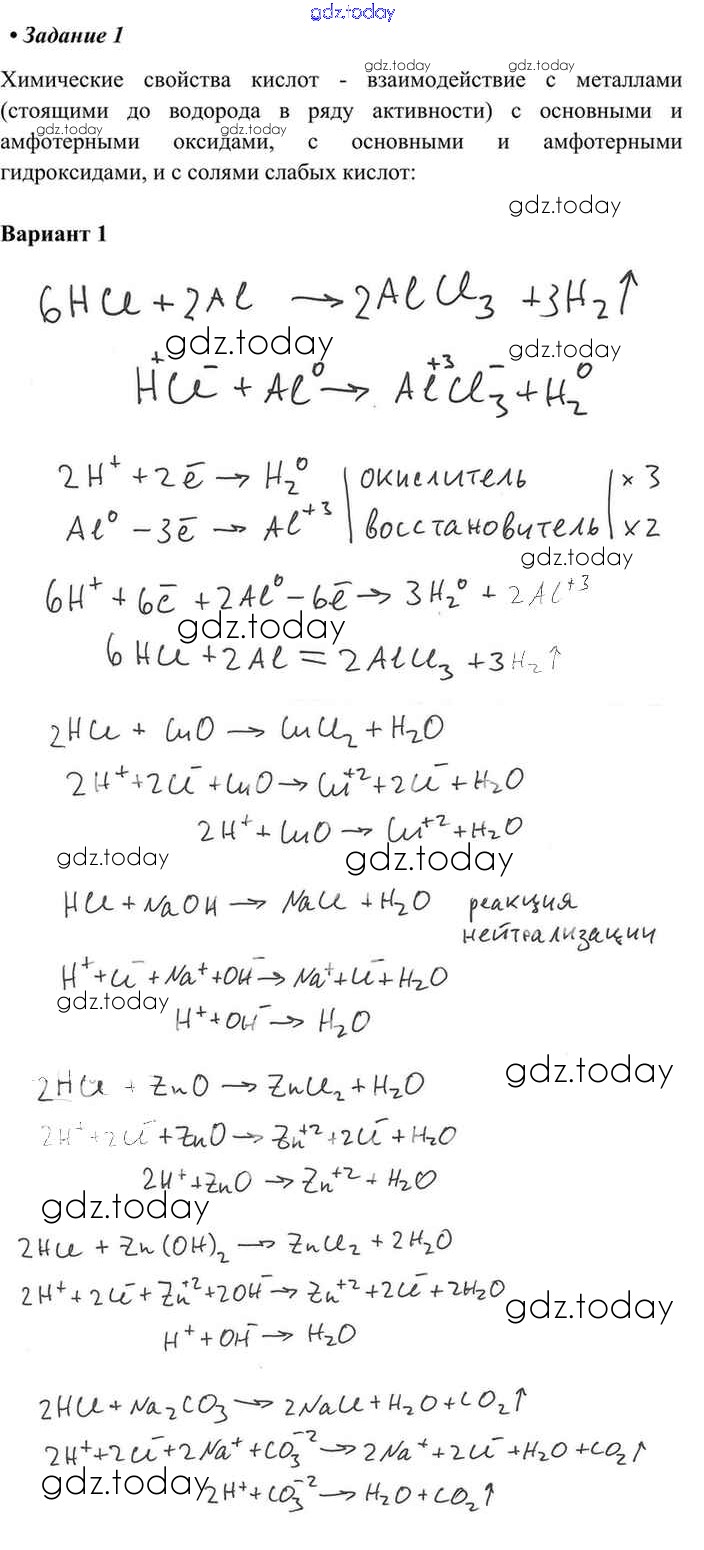 gdz.today
• Задание 1
gdz.today gdz.today
Химические свойства кислот - взаимодействие с металлами
(стоящими до водорода в ряду активности) с основными и
gdz.today gdz.today
амфотерными оксидами, с основными и амфотерными
гидроксидами, и с солями слабых кислот:
gdz.today
Вариант 1
6HCl + 2Al → 2AlCl₃ + 3H₂↑
gdz.today gdz.today
H⁺Cl⁻ + Al⁰ → Al⁺³Cl₃⁻ + H₂⁰
2H⁺ + 2ē → H₂⁰ | окислитель | × 3
Al⁰ − 3ē → Al⁺³ | восстановитель | × 2
gdz.today
6H⁺ + 6ē + 2Al⁰ − 6ē → 3H₂⁰ + 2Al⁺³
gdz.today
6HCl + 2Al = 2AlCl₃ + 3H₂↑
2HCl + CuO → CuCl₂ + H₂O
2H⁺ + 2Cl⁻ + CuO → Cu⁺² + 2Cl⁻ + H₂O
2H⁺ + CuO → Cu⁺² + H₂O
gdz.today gdz.today
HCl + NaOH → NaCl + H₂O реакция
нейтрализации
H⁺ + Cl⁻ + Na⁺ + OH⁻ → Na⁺ + Cl⁻ + H₂O
gdz.today
H⁺ + OH⁻ → H₂O
gdz.today
2HCl + ZnO → ZnCl₂ + H₂O
2H⁺ + 2Cl⁻ + ZnO → Zn⁺² + 2Cl⁻ + H₂O
2H⁺ + ZnO → Zn⁺² + H₂O
gdz.today
2HCl + Zn(OH)₂ → ZnCl₂ + 2H₂O
2H⁺ + 2Cl⁻ + Zn⁺² + 2OH⁻ → Zn⁺² + 2Cl⁻ + 2H₂O
gdz.today
H⁺ + OH⁻ → H₂O
2HCl + Na₂CO₃ → 2NaCl + H₂O + CO₂↑
2H⁺ + 2Cl⁻ + 2Na⁺ + CO₃⁻² → 2Na⁺ + 2Cl⁻ + H₂O + CO₂↑
gdz.today
2H⁺ + CO₃⁻² → H₂O + CO₂↑